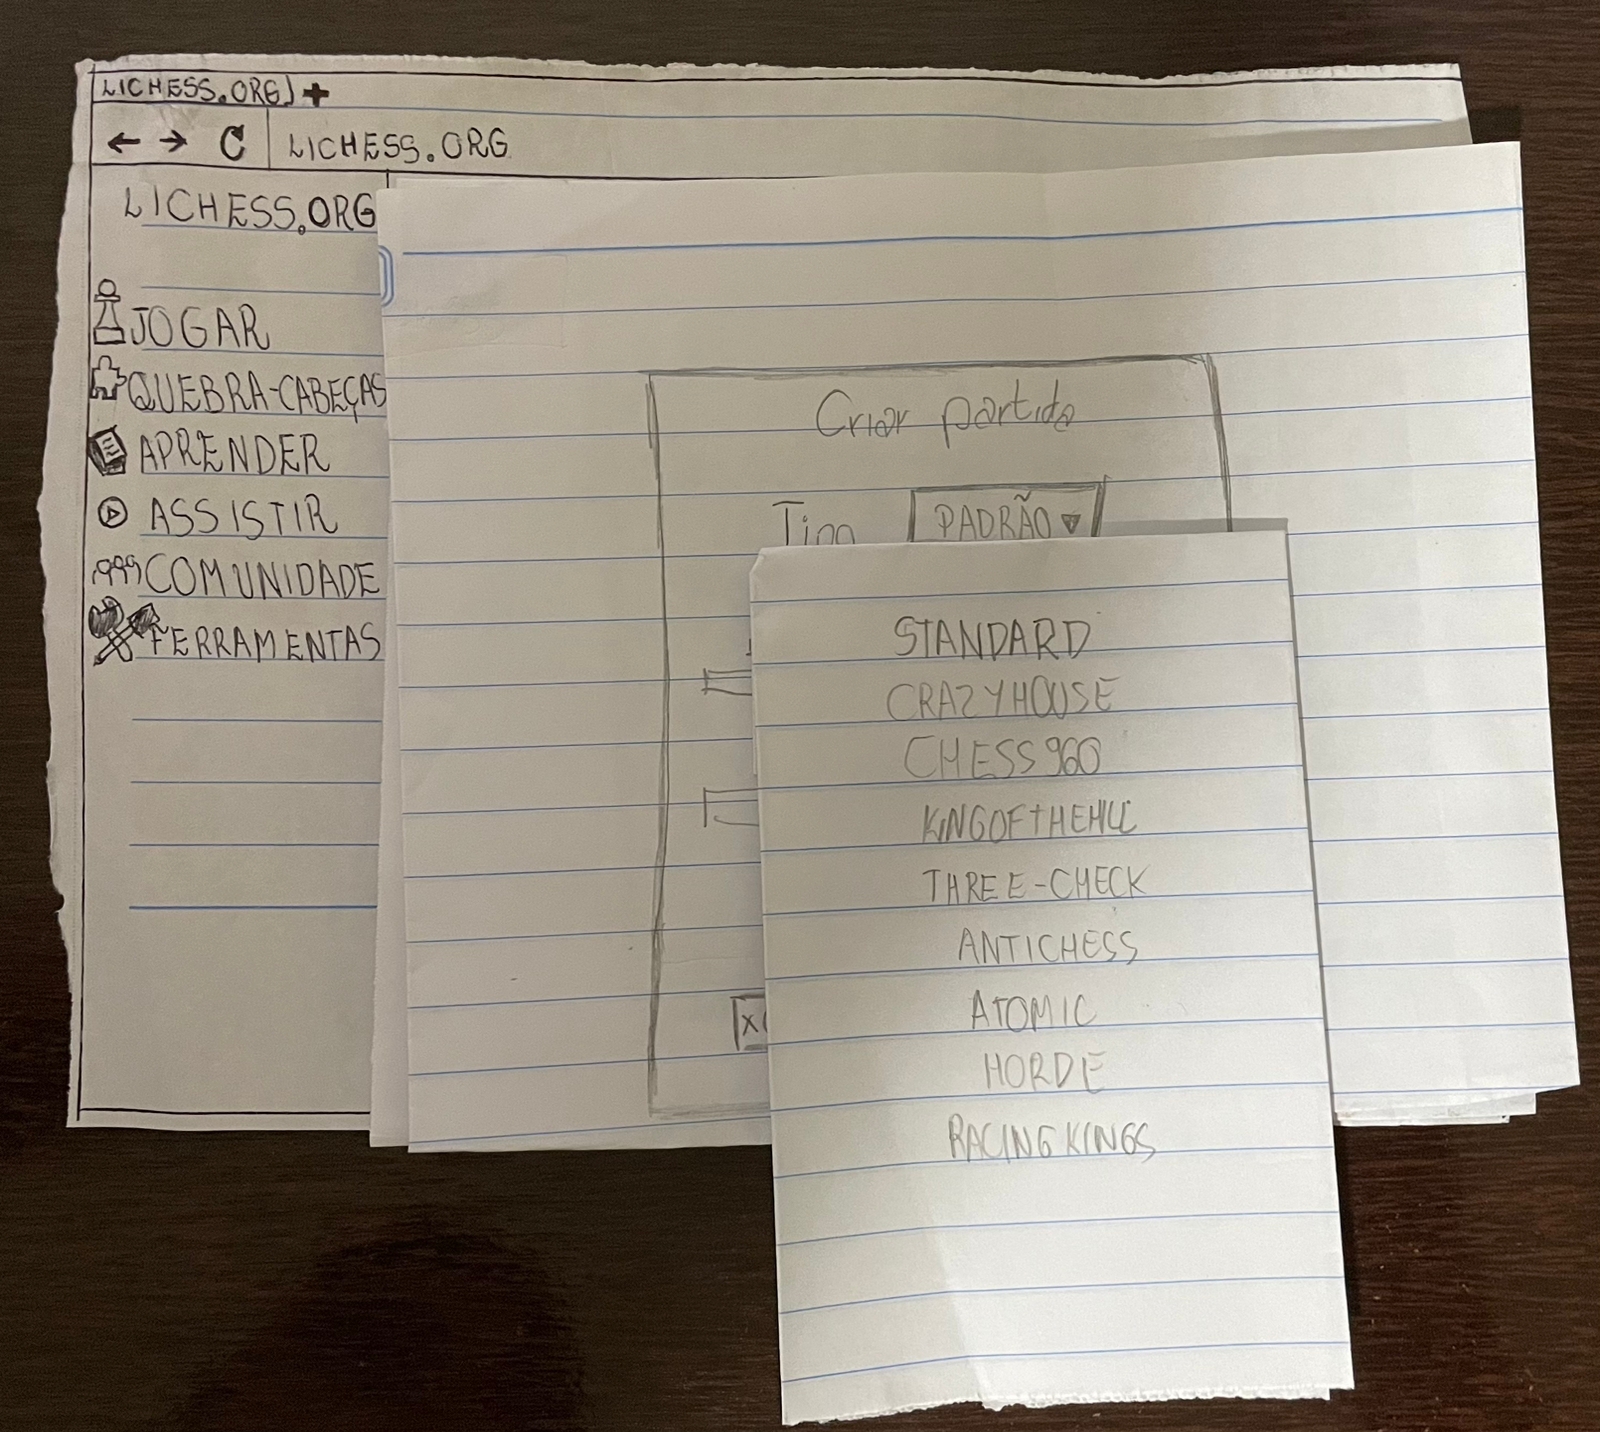 LICHESS.ORG +
← → C LICHESS.ORG
LICHESS.ORG
JOGAR
QUEBRA-CABEÇAS
APRENDER
ASSISTIR
COMUNIDADE
FERRAMENTAS
Criar partida
Tipo PADRÃO ▼
STANDARD
CRAZYHOUSE
CHESS960
KINGOFTHEHILL
THREE-CHECK
ANTICHESS
ATOMIC
HORDE
RACING KINGS